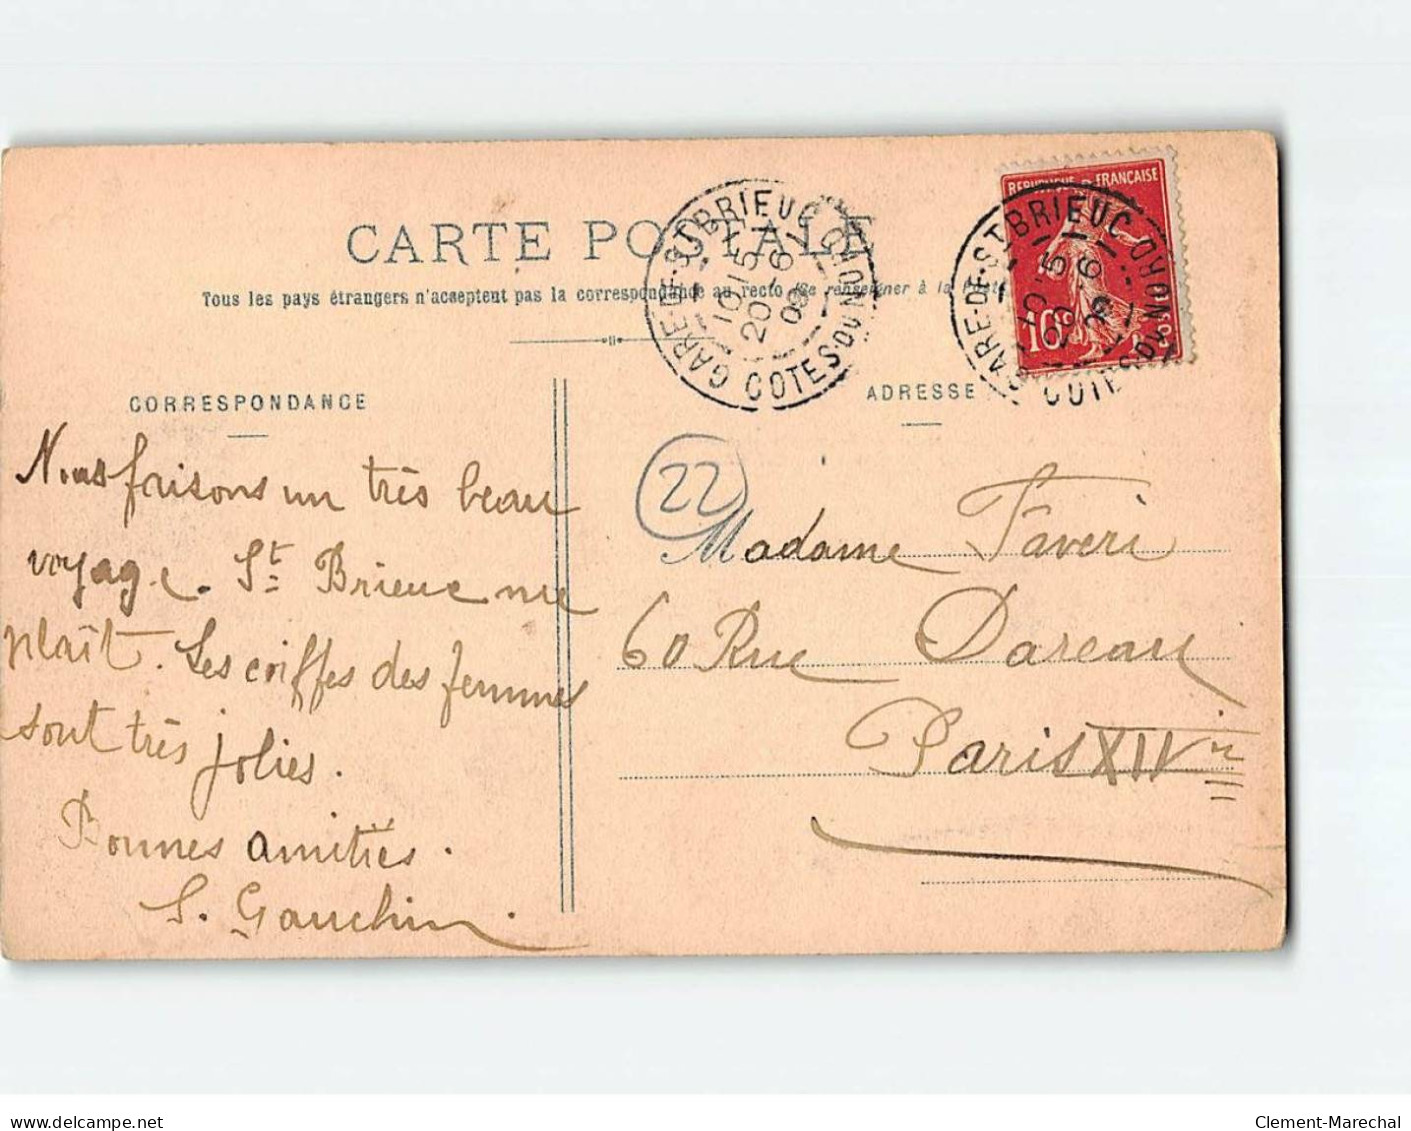 CARTE POSTALE
Tous les pays étrangers n'acceptent pas la correspondance au recto (Se renseigner à la Poste)
GARE-DE-ST BRIEUC
10/15
20-6
09
COTES-DU-NORD
REPUBLIQUE FRANÇAISE
10c
POSTES
GARE-DE-ST BRIEUC
10/15
20-6
09
COTES-DU-NORD
CORRESPONDANCE
ADRESSE
Nous faisons un très beau
voyage. St Brieuc me
plaît. Les coiffes des femmes
sont très jolies.
Bonnes amitiés.
S. Gauchin.
22
Madame Faveri
60 Rue Dareau
Paris XIVe
delcampe.net
Clement-Marechal